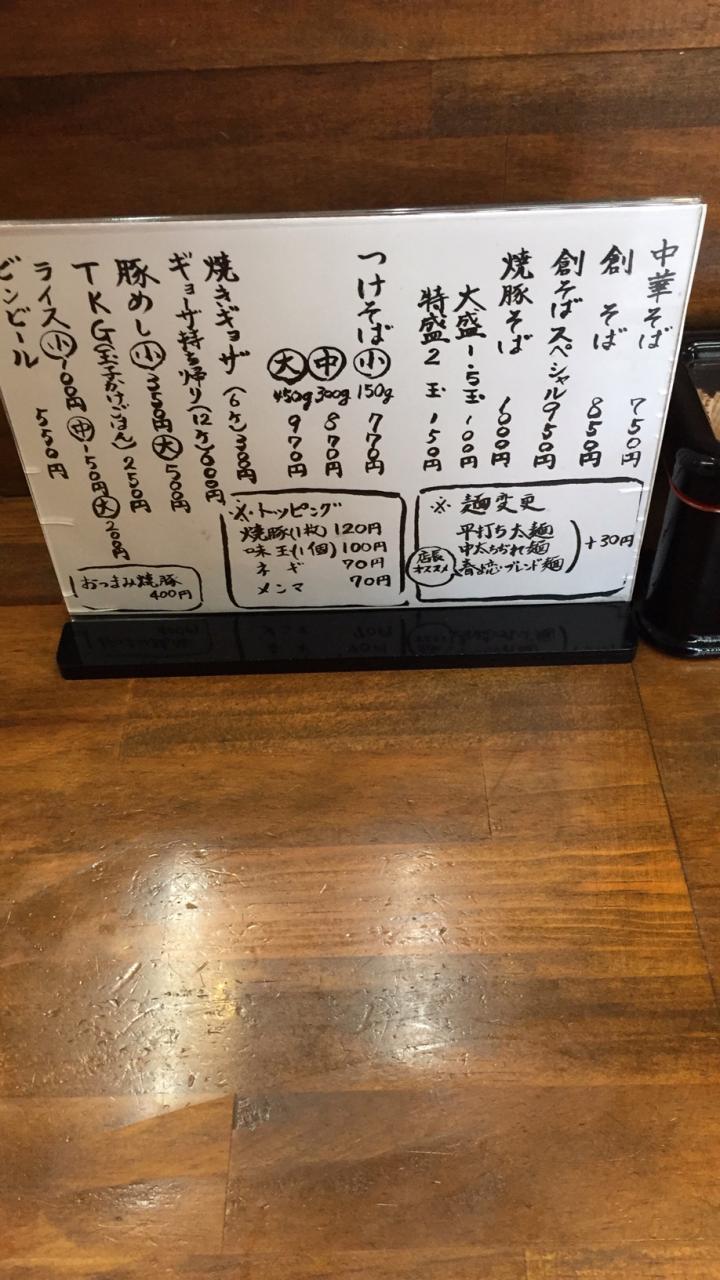 中華そば 750円
創そば 850円
創そばスペシャル 950円
焼豚そば 1000円
大盛1.5玉 100円
特盛2玉 150円
つけそば 小 150g 770円
中 300g 870円
大 450g 970円
焼きギョーザ(6ケ) 300円
ギョーザ持ち帰り(12ケ) 600円
豚めし 小 350円 大 500円
TKG(玉子かけごはん) 250円
ライス 小 100円 中 150円 大 200円
ビンビール 550円
※麺変更
平打ち太麺
中太ちぢれ麺
店長オススメ 春よ恋・ブレンド麺
+30円
※トッピング
焼豚(1枚) 120円
味玉(1個) 100円
ネギ 70円
メンマ 70円
おつまみ焼豚
400円